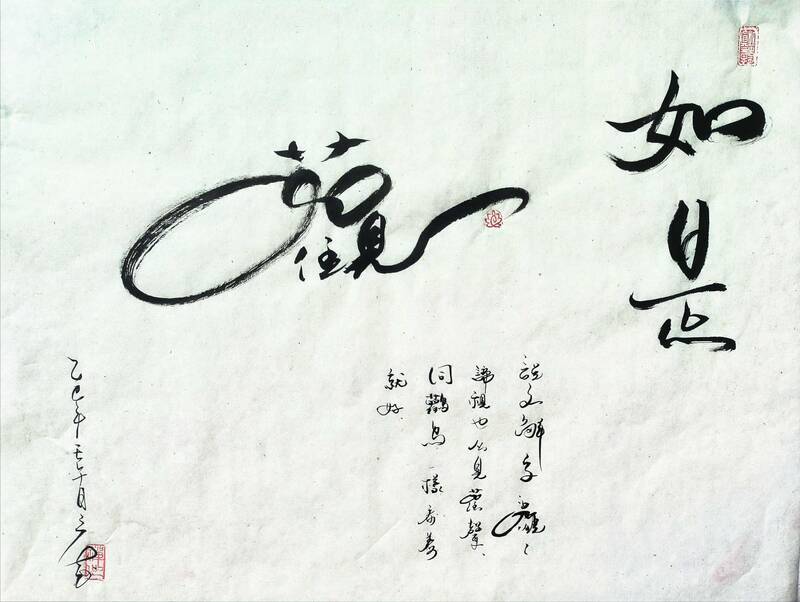 如是
觀
說文解字觀
諦視也从見雚聲、
同鸛鳥一樣看着
就好、
乙巳年十月